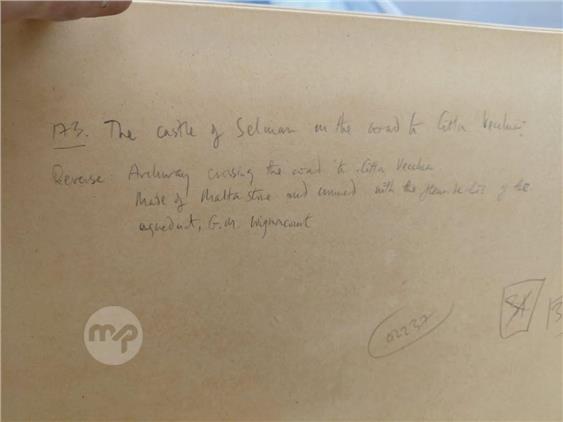 173. The castle of Selmun on the road to Citta Vecchia.
Reverse Archway crossing the road to Citta Vecchia
Made of Malta stone and crowned with the fleur de lis of the
aqueduct, G.M. Wignacourt
02237
mp